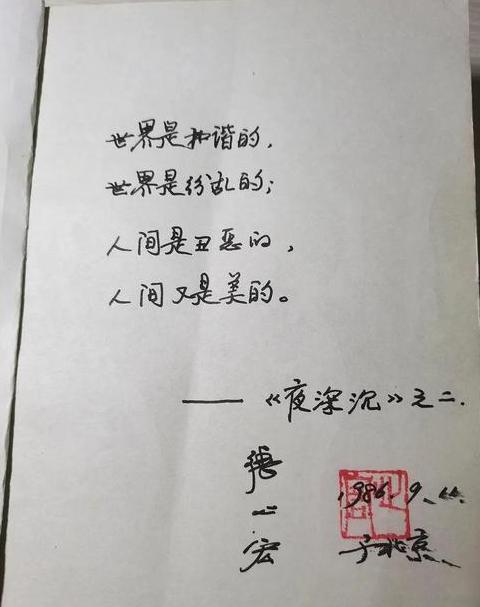 世界是和谐的，
世界是纷乱的；
人间是丑恶的，
人间又是美的。
——《夜深沉》之二.
张
心
宏
1986.9.
于北京.